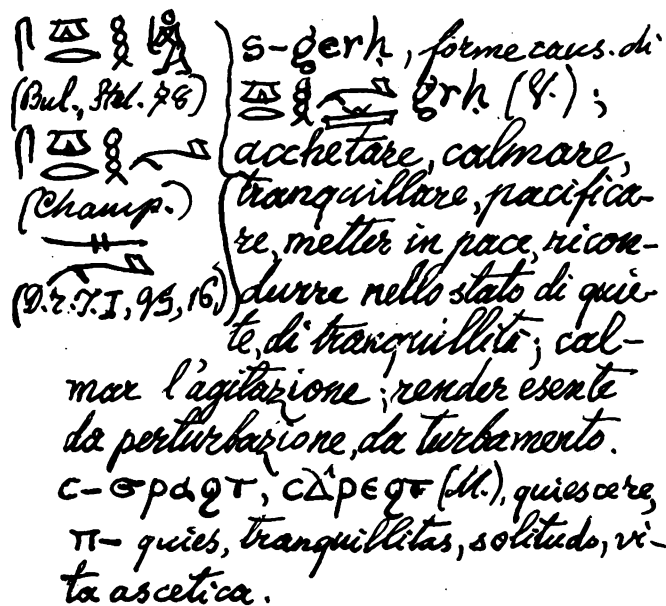 𓋴𓎼𓂋𓎛
(Bul., Stel. 78)
𓋴𓎼𓂋𓎛𓂡
(Champ.)
𓊃𓂡
(D.r.T.I, 95, 16.)
s-gerḥ, forme caus. di
𓎼𓂋𓎛 grḥ (V.);
acchetare, calmare,
tranquillare, pacifica-
re, metter in pace, ricon-
durre nello stato di quie-
te, di tranquillità; cal-
mar l'agitazione; render esente
da perturbazione, da turbamento.
ⲥ-ϭⲣⲁϩⲧ, ⲥϫⲣⲉϩⲧ (M.), quiescere,
ⲡ- quies, tranquillitas, solitudo, vi-
ta ascetica.